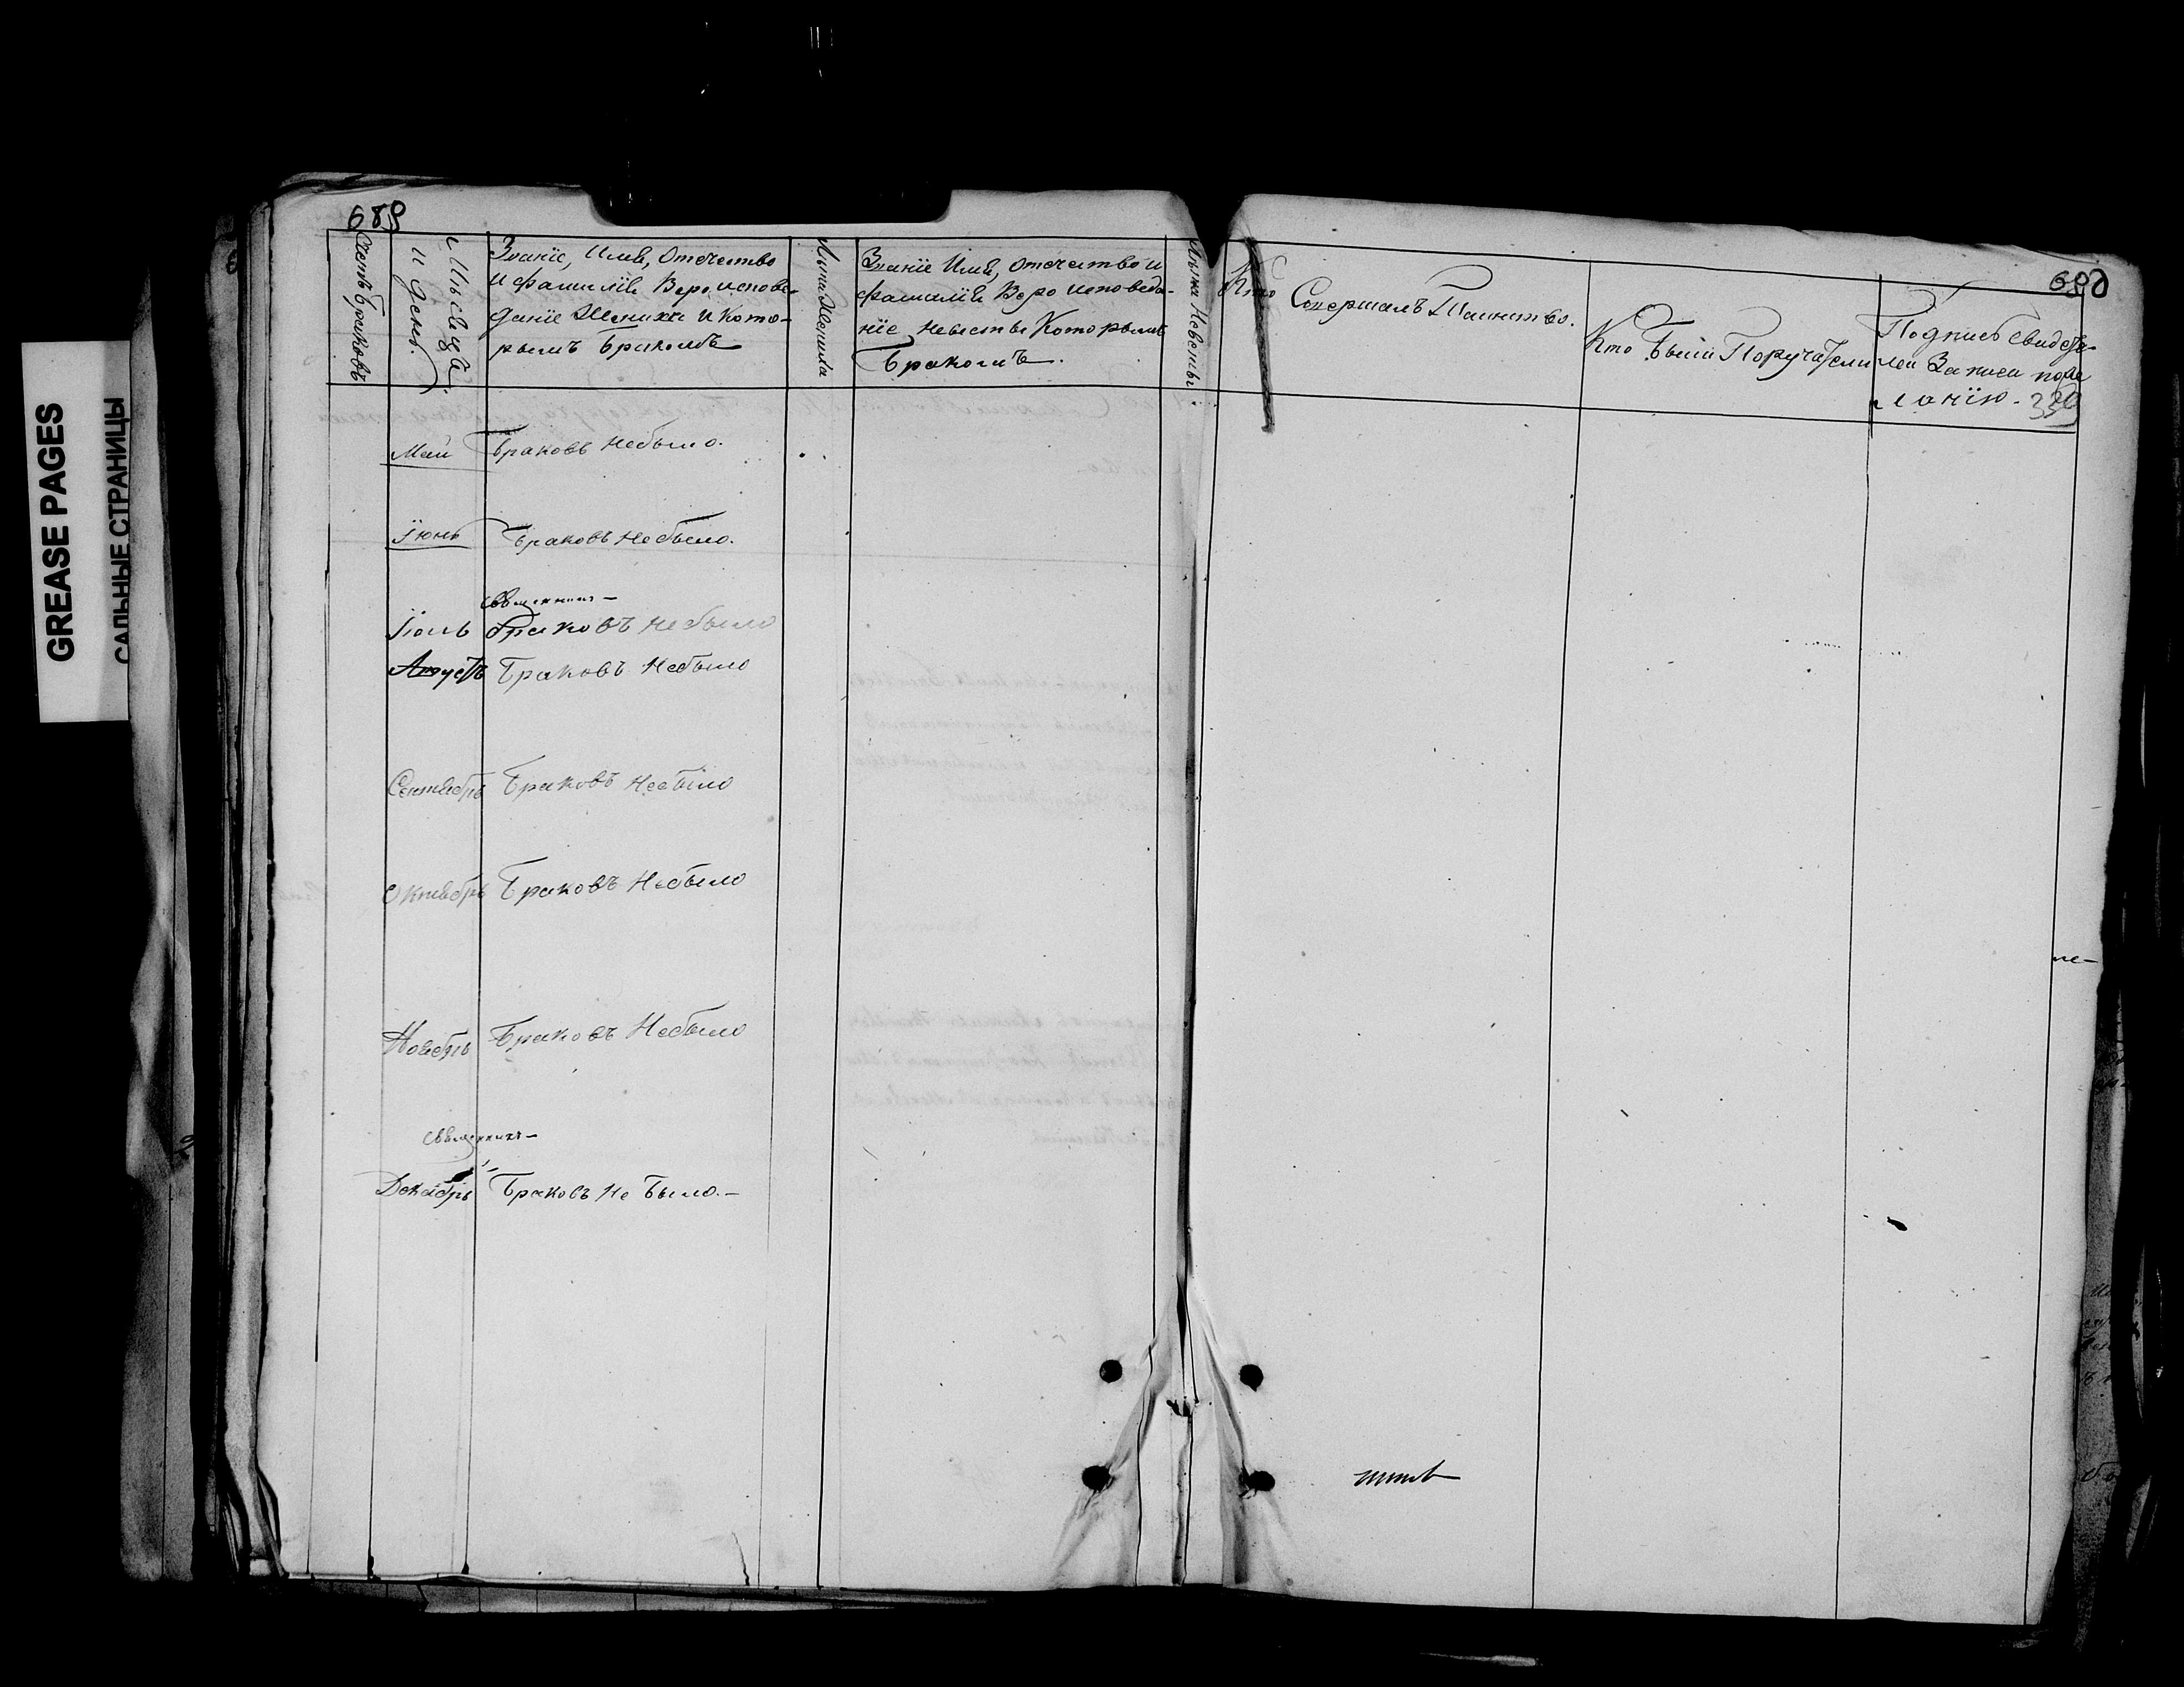 GREASE PAGES
САЛЬНЫЕ СТРАНИЦЫ
689
690
Счетъ браковъ
Мѣсяцъ
и день.
Званіе, Имя, Отчество
и фамилія Вероиспове-
даніе Жениха и Кото-
рымъ бракомъ
Лѣта Жениха
Званіе Имя, Отчество и
фамилія Веро исповеда-
ніе, невесты Которымъ
Бракомъ.
Лѣта Невесты
Кто Совершалъ Таинство.
Кто Были Поручатели
Подпись Свидете-
лей Записи поже
ланію.
Май Браковъ небыло.
Іюнь Браковъ небыло.
Священникъ
Іюль браковъ небыло
Августъ Браковъ Небыло
Сентябрь Браковъ Небыло
Октябрь Браковъ Небыло
Ноябрь Браковъ Небыло
Священникъ
Декабрь Браковъ Не было.